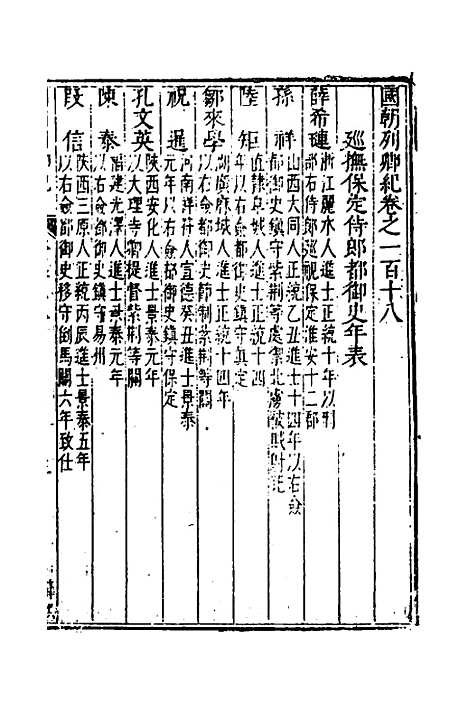 國朝列卿紀卷之一百十八
巡撫保定侍郎都御史年表
薛希璉
浙江麗水人進士正統十年以刑
部右侍郎巡視保定淮安十二郡
孫祥
山西大同人正統乙丑進士十四年以右僉
都御史鎮守紫荆等處
陸矩
直隸
人進士正統十四
年以右僉都御史鎮守真定
鄒來學
湖廣麻城人進士正統十四年
以右僉都御史節制紫荆等關
祝暹
河南祥符人宣德癸丑進士景泰
元年以右僉都御史鎮守保定
孔文英
陝西安化人進士景泰元年
以大理寺卿提督紫荆等關
陳泰
福建光澤人進士景泰元年
以右僉都御史鎮守易州
段信
陝西三原人正統丙辰進士景泰五年
以右僉都御史移守倒馬關六年致仕